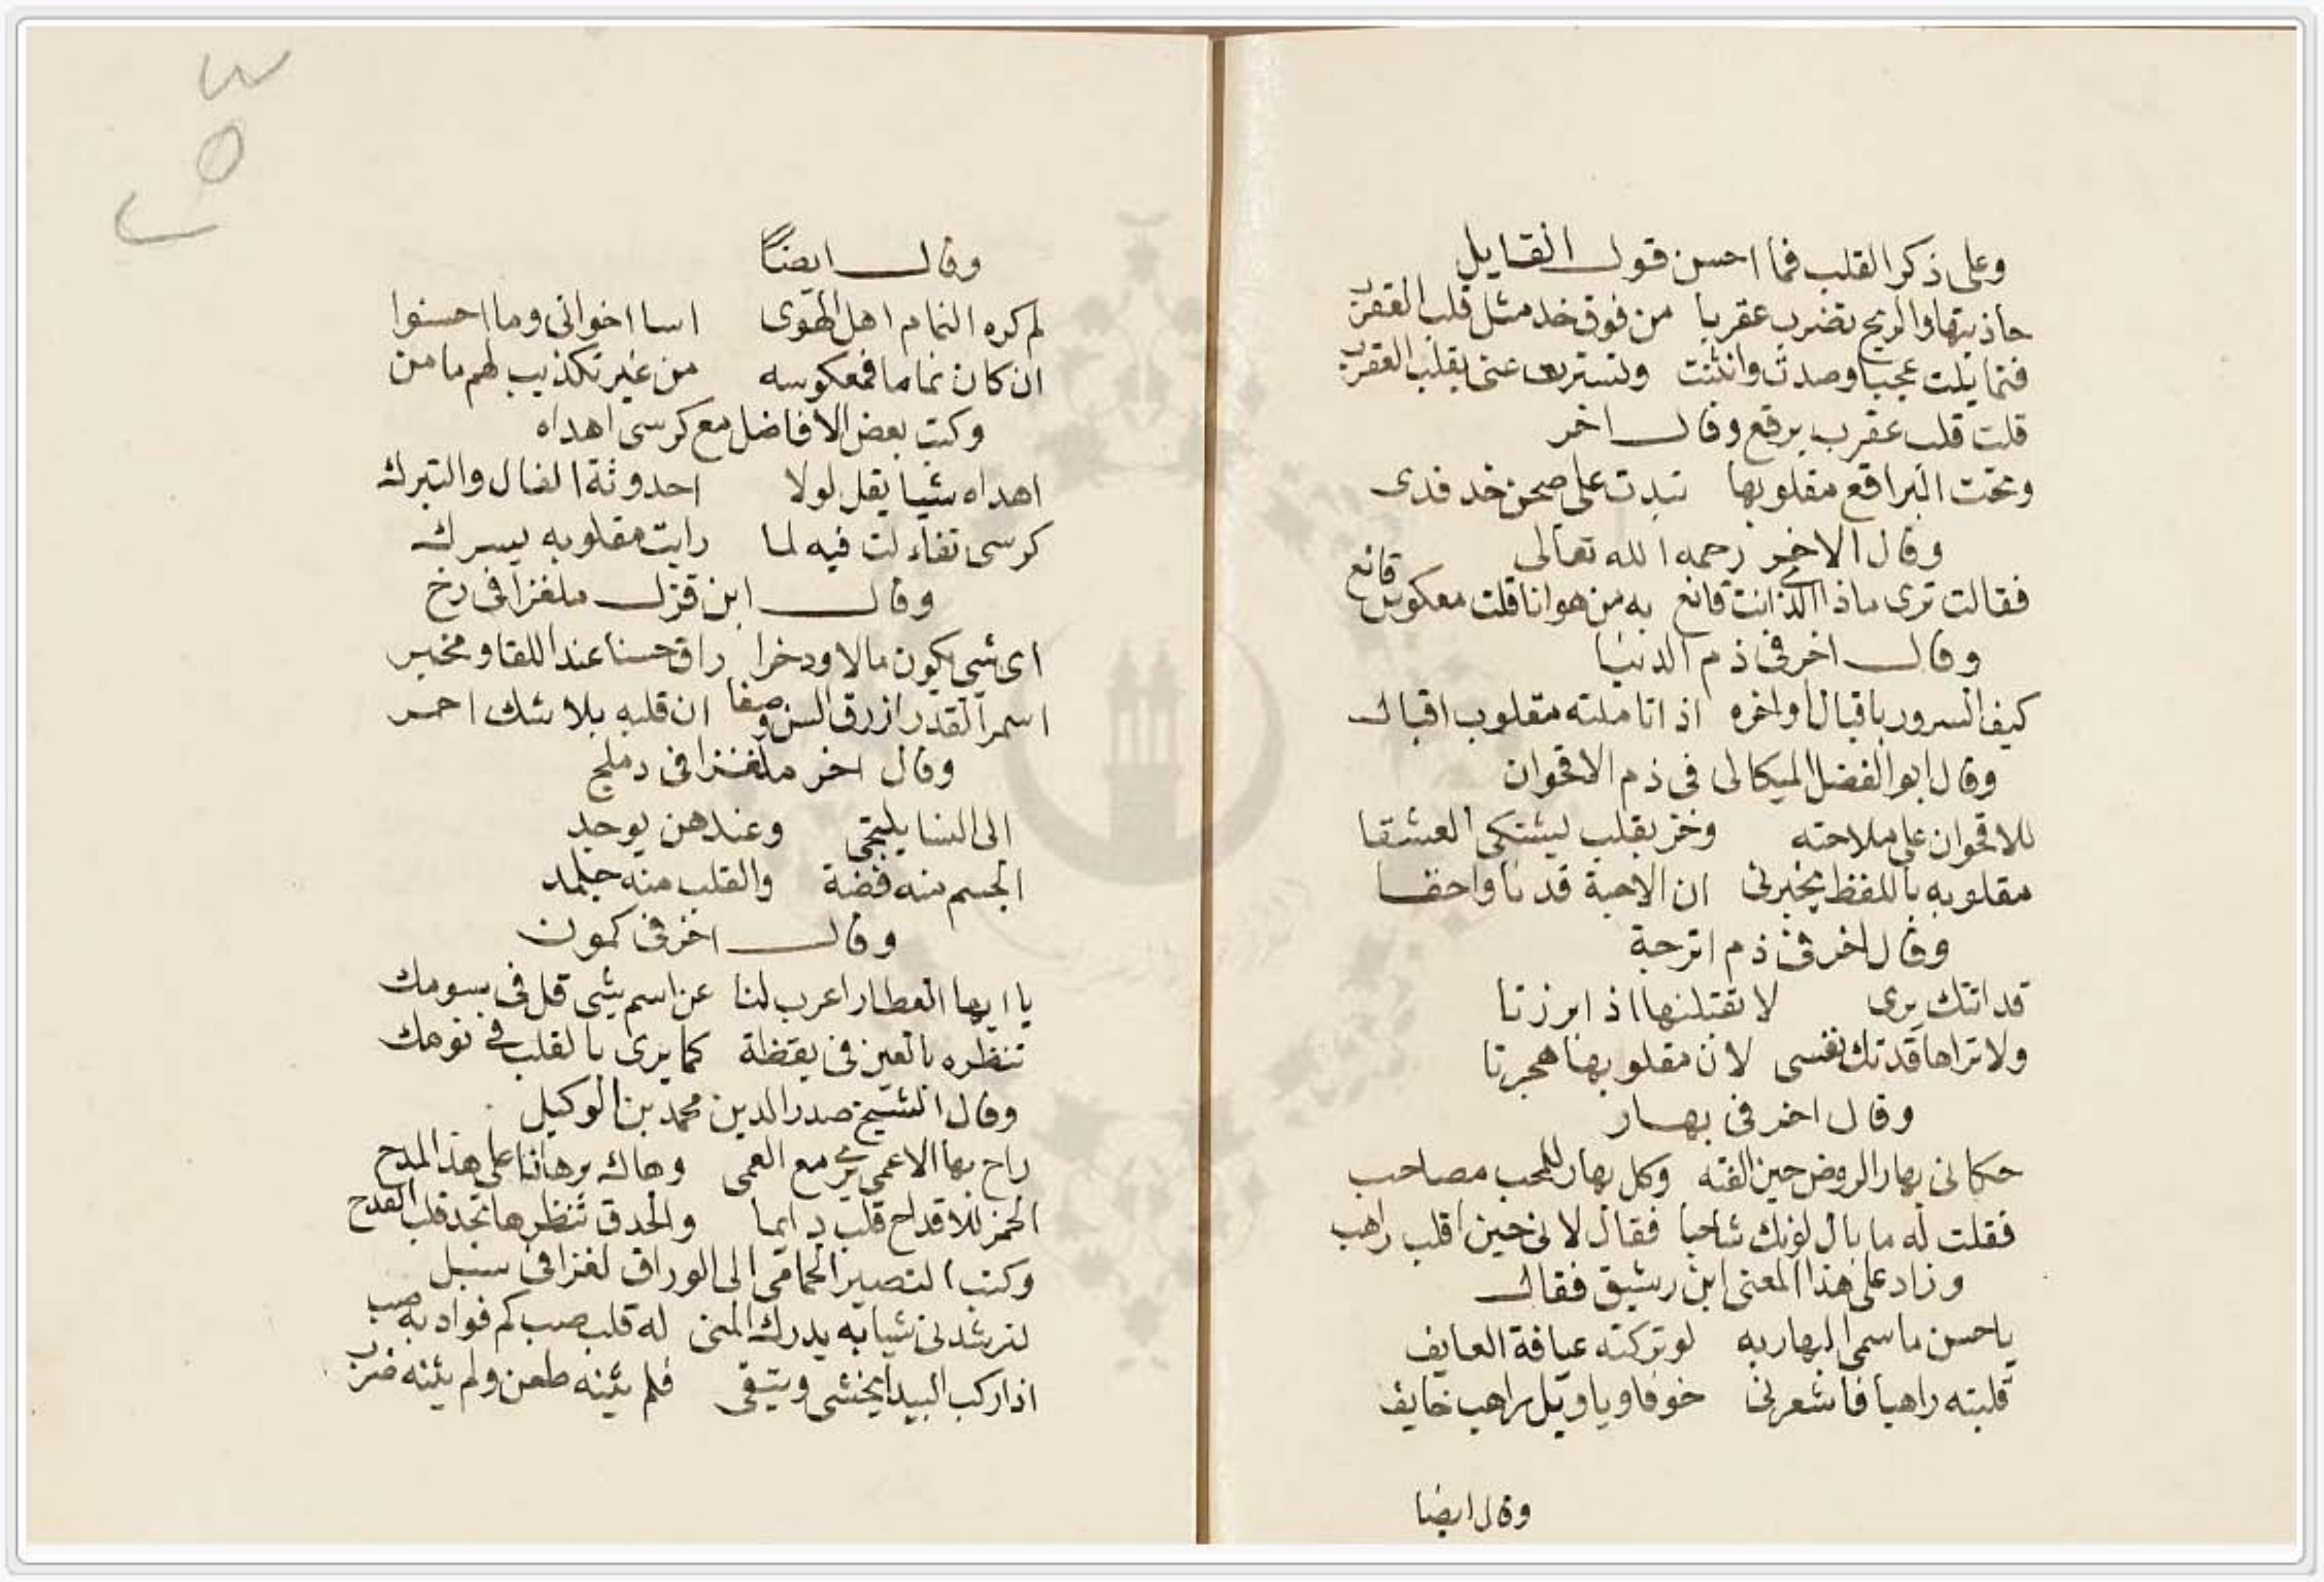 وعلى ذكر القلب فما احسن قول القايل
جاذبتها والريح تضرب عقربا من فوق خد مثل قلب العقرب
فتمايلت عجبا وصدت وانثنت وتسترت عنى بقلب العقرب
قلت قلب عقرب برقع وقال اخر
وتحت البراقع مقلوبها تبدت على صحن خد فدى
وقال الاخر رحمه الله تعالى
فقالت ترى ماذا الذى انت قانع به من هوانا قلت معكوس قانع
وقال اخر فى ذم الدنيا
كيف السرور باقبال واخره اذا تاملته مقلوب اقبال
وقال ابو الفضل الميكالى فى ذم الاقحوان
للاقحوان على ملاحته وخز بقلب ليشتكى العشقا
مقلوبه باللفظ يخبرنى ان الاحبة قد نا واحقا
وقال اخر فى ذم اترجة
قد اتتك برى لا تقبلنها اذ ابرزتا
ولا تراها فدتك نفسى لان مقلوبها هجرتا
وقال اخر فى بهار
حكانى بهار الروض حين الفته وكل بهار للمحب مصاحب
فقلت له ما بال لونك شاحبا فقال لانى حين اقلب راهب
وزاد على هذا المعنى ابن رشيق فقال
ياحسن ماسمى البهار به لو تركته عيافة العايف
قلبته راهبا فاشعرنى خوفا ويا ويل راهب خايف
وقال ايضا
وقال ايضاً
لم كره النمام اهل الهوى اسا اخوانى وما احسنوا
ان كان نماما فمعكوسه من غير تكذيب لهم مامن
وكتب بعض الافاضل مع كرسى اهداه
اهداه شيا يقل لولا احدوثة الفال والتبرك
كرسى تفاءلت فيه لما رايت مقلوبه يسرك
وقال ابن قزل ملغزا فى رخ
اى شي يكون مالا ودخرا راق حسنا عند اللقا ومخبر
اسمر القد ازرق السن وصفا ان قلبه بلا شك احمر
وقال اخر ملغزا فى دملج
الى النسا يلتجى وعندهن يوجد
الجسم منه فضة والقلب منه جلمد
وقال اخر فى كمون
يا ايها العطار اعرب لنا عن اسم شي قل فى سومك
تنظره بالعين فى يقظة كما يرى بالقلب فى نومك
وقال الشيخ صدر الدين محمد بن الوكيل
راح بها الاعمى يرى مع العمى وهاك برهانا على هذا المدح
الخمر للاقداح قلب دايما والحدق تنظرها تجد قلب القدح
وكتب النصير الحمامى الى الوراق لغزا فى سبل
لترشدنى شيا به يدرك المنى له قلب صب كم فواد به صب
اذا ركب البيد ايخشى ويتقى فلم يثنه طعن ولم يثنه ضرب